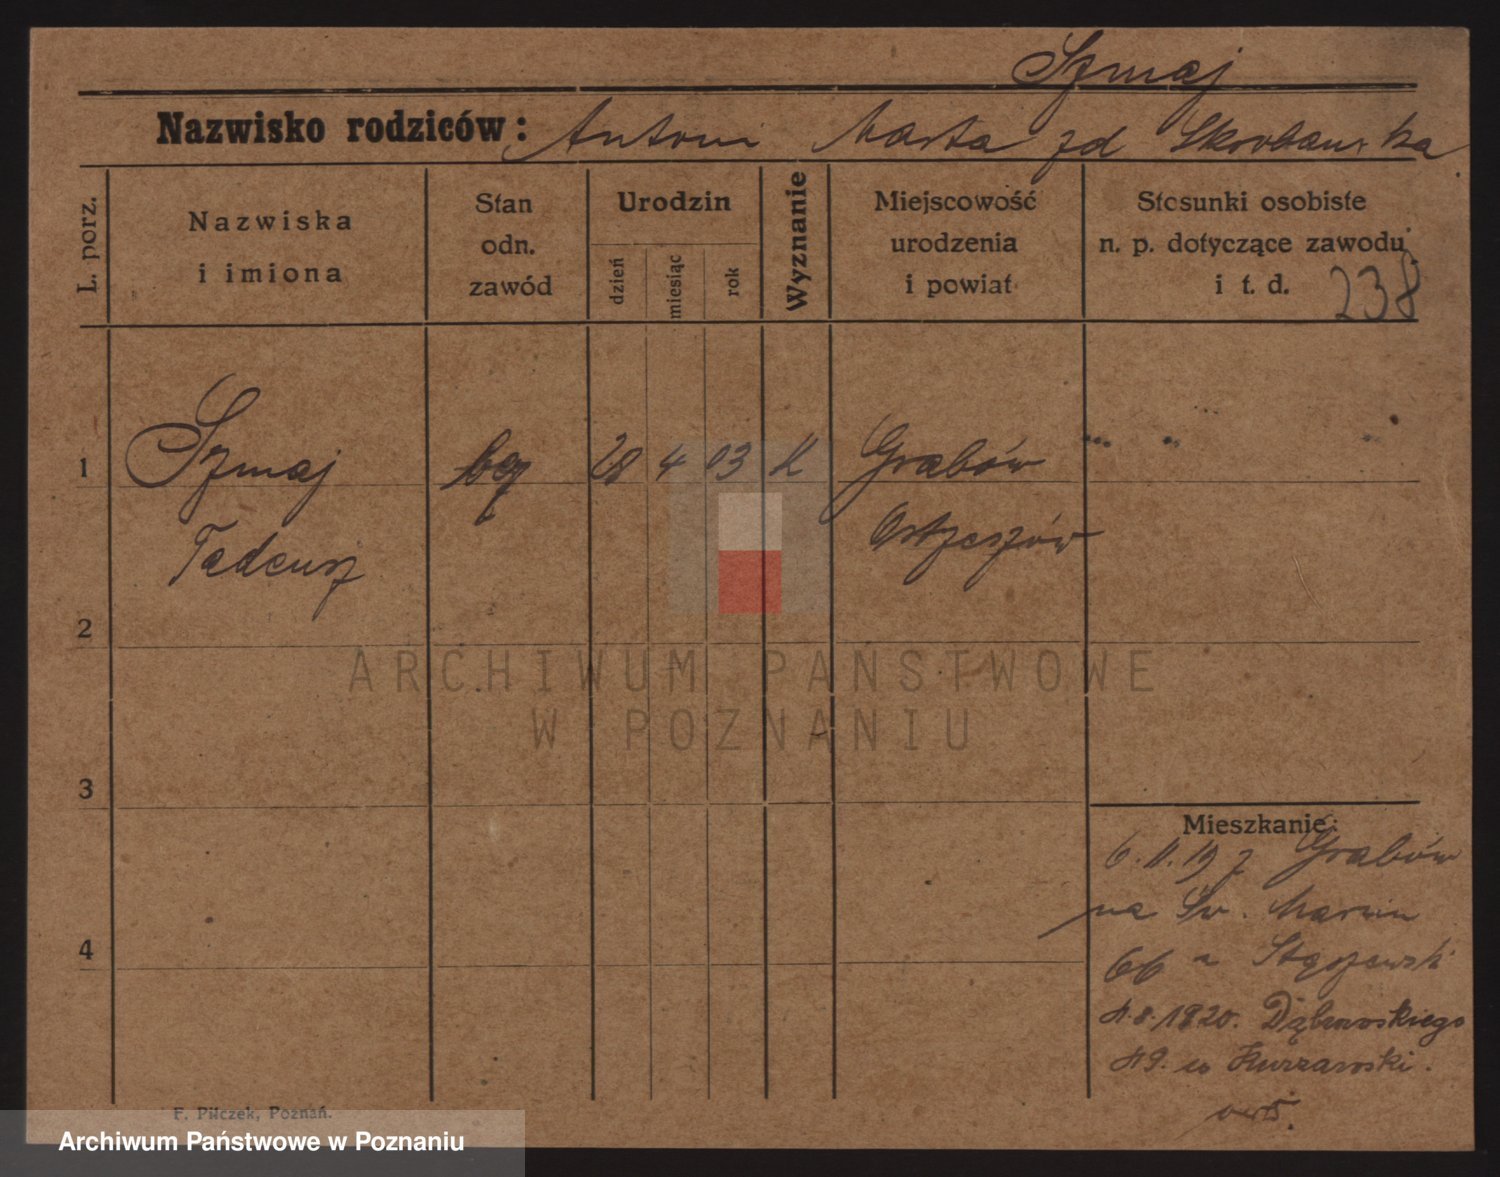 Szmaj
Nazwisko rodziców: Antoni Marta zd
L. porz.
Nazwiska
i imiona
Stan
odn.
zawód
Urodzin
dzień
miesiąc
rok
Wyznanie
Miejscowość
urodzenia
i powiat
Stosunki osobiste
n. p. dotyczące zawodu
i t. d.
238
1
Szmaj
Tadeusz
28 4 03 K
Grabów
Ostrzeszów
2
3
4
Mieszkanie:
6.11.19 z Grabów
na Św. Marcin
66
.8.1920. Dąbrowskiego
F. Pilczek, Poznań.
ARCHIWUM PAŃSTWOWE
W POZNANIU
Archiwum Państwowe w Poznaniu